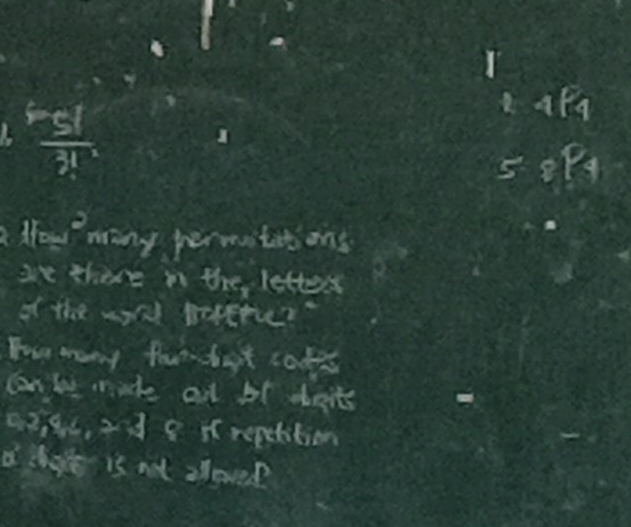 5!
3!
2. How many permutations
are there in the letters
of the word
How many four-digit codes
can be made out of digits
and 8 if repetition
of digit is not allowed?
4P4
5 8P4